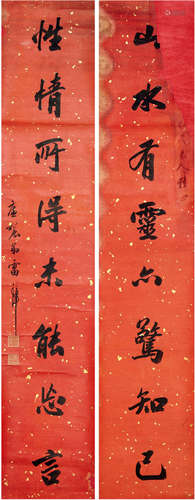 山水有靈亦驚知己
性情所得未能忘言